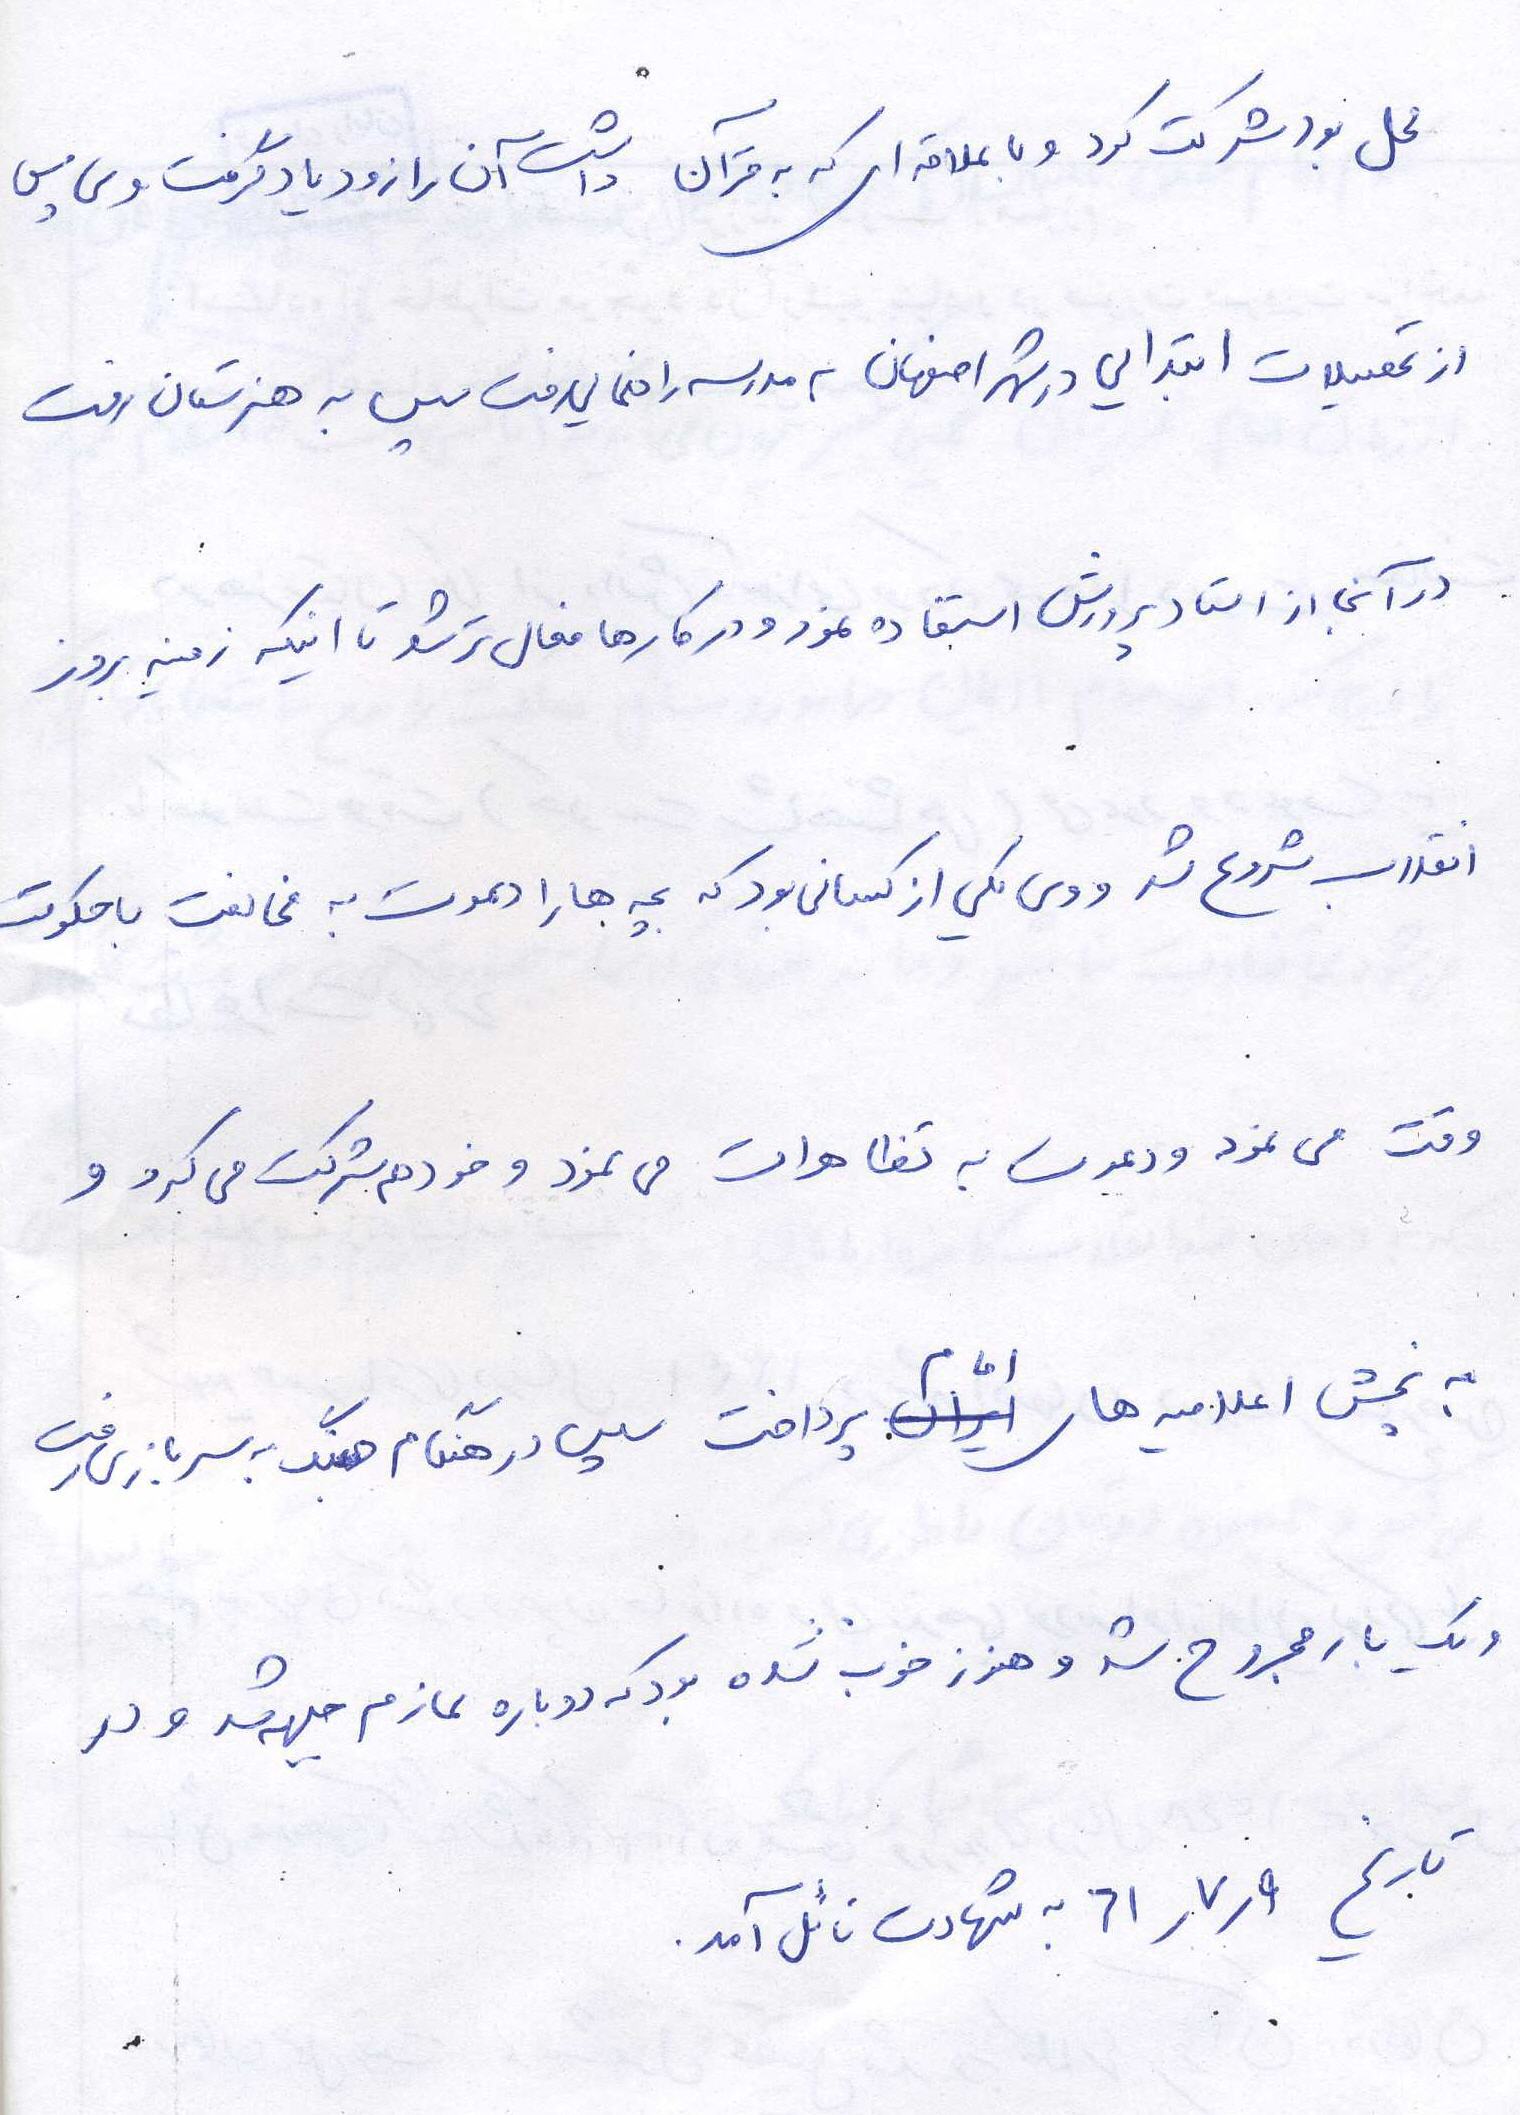 محل بود شرکت کرد و با علاقه ای که به قرآن داشت آن را زود یاد گرفت وی پس
از تحصیلات ابتدایی در شهر اصفهان به مدرسه راهنمایی رفت سپس به هنرستان رفت
در آنجا از استاد پرورش استفاده نمود و در کارها فعال تر شد تا اینکه زمینه بروز
انقلاب شروع شد و وی یکی از کسانی بود که بچه ها را دعوت به مخالفت با حکومت
وقت می نمود و دعوت به تظاهرات می نمود و خود هم شرکت می کرد و
به پخش اعلامیه های امام پرداخت سپس در هنگام جنگ به سربازی رفت
و یک بار مجروح شد و هنوز خوب نشده بود که دوباره عازم جبهه شد و در
تاریخ ۹ر۷ر ۶۱ به شهادت نائل آمد.